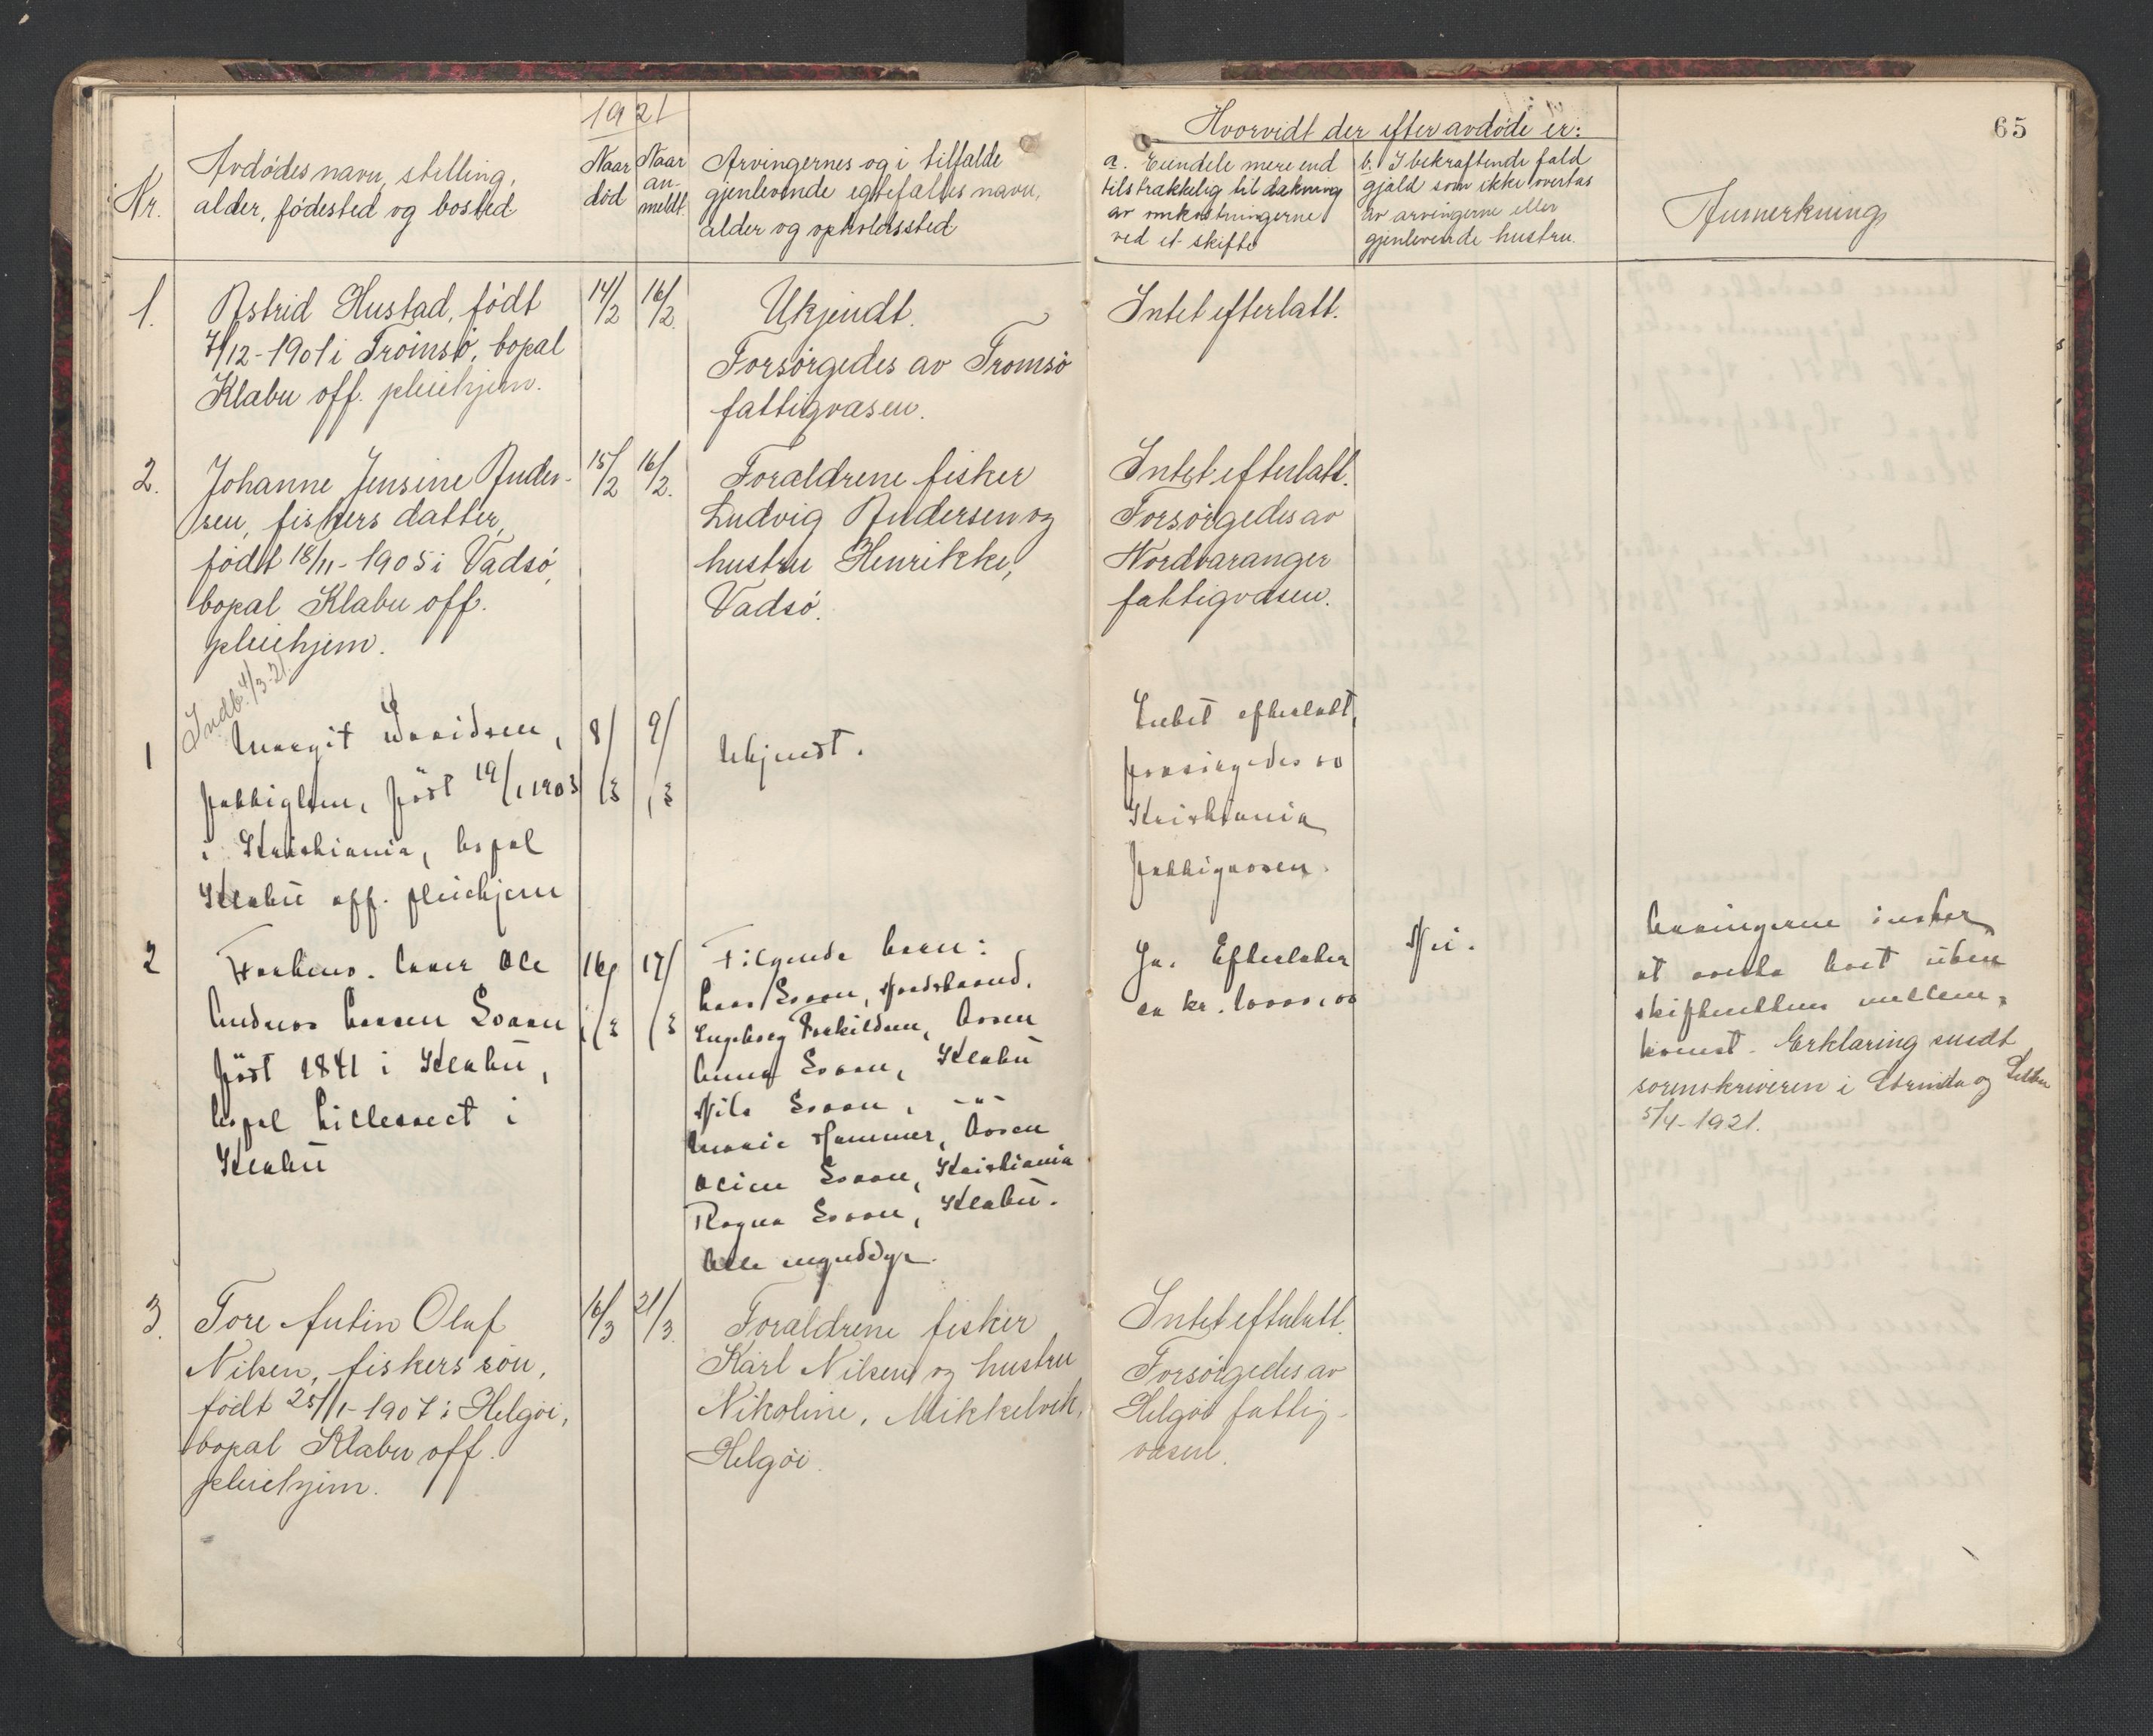 65
1921
Nr.
Avdødes navn, stilling,
alder, fødested og bosted
Naar
død
Naar
an-
meldt.
Arvingernes og i tilfælde
gjenlevende egtefælles navn,
alder og opholdssted
Hvorvidt der efter avdøde er:
a. Eiendele mere end
tilstrækkelig til dækning
av omkostningerne
ved et skifte
b. I bekræftende fald
gjæld som ikke overtas
av arvingerne eller
gjenlevende hustru.
Anmerkning
1.
Astrid Hustad, født
7/12-1901 i Tromsø, bopæl
Klæbu off. pleiehjem.
14/2
16/2.
Ukjendt.
Forsørgedes av Tromsø
fattigvæsen.
Intet efterlatt.
2.
Johanne Jensine Ander-
sen, fiskers datter,
født 18/11-1905 i Vadsø,
bopæl Klæbu off.
pleiehjem.
15/2
16/2.
Forældrene fisker
Ludvig Andersen og
hustru Henrikke,
Vadsø.
Intet efterlatt.
Forsørgedes av
Nordvaranger
fattigvæsen.
Indb. 4/3-21.
1
Margit Davidsen,
fattiglem, født 19/1 1903
i Kristiania, bopæl
Klæbu off. pleiehjem
8/3
9/3
Ukjendt.
Intet efterlatt,
forsørgedes av
Kristiania
fattigvæsen.
2
Ole
Andreas Larsen
født 1841 i Klæbu,
bopæl Lilleugset i
Klæbu
16/3
17/3
Følgende barn:
Ingeborg Torkildsen,
Anna Klæbu
Nils -"-
Marie Hammer,
Kristiania
Ragna Klæbu.
Alle myndige.
Ja. Efterlater
ca kr. 10000,00
Nei.
Arvingerne ønsker
at overta boet uten
skifterettens mellem-
komst. Erklæring sendt
sorenskriveren i Strinda og Selbu
5/4-1921.
3.
Tore Antin Olaf
Nilsen, fiskers søn,
født 25/1-1907 i Helgøi,
bopæl Klæbu off.
pleiehjem.
16/3
21/3.
Forældrene fisker
Karl Nilsen og hustru
Nikoline, Mikkelvik,
Helgøi.
Intet efterlatt.
Forsørgedes av
Helgøi fattig-
væsen.